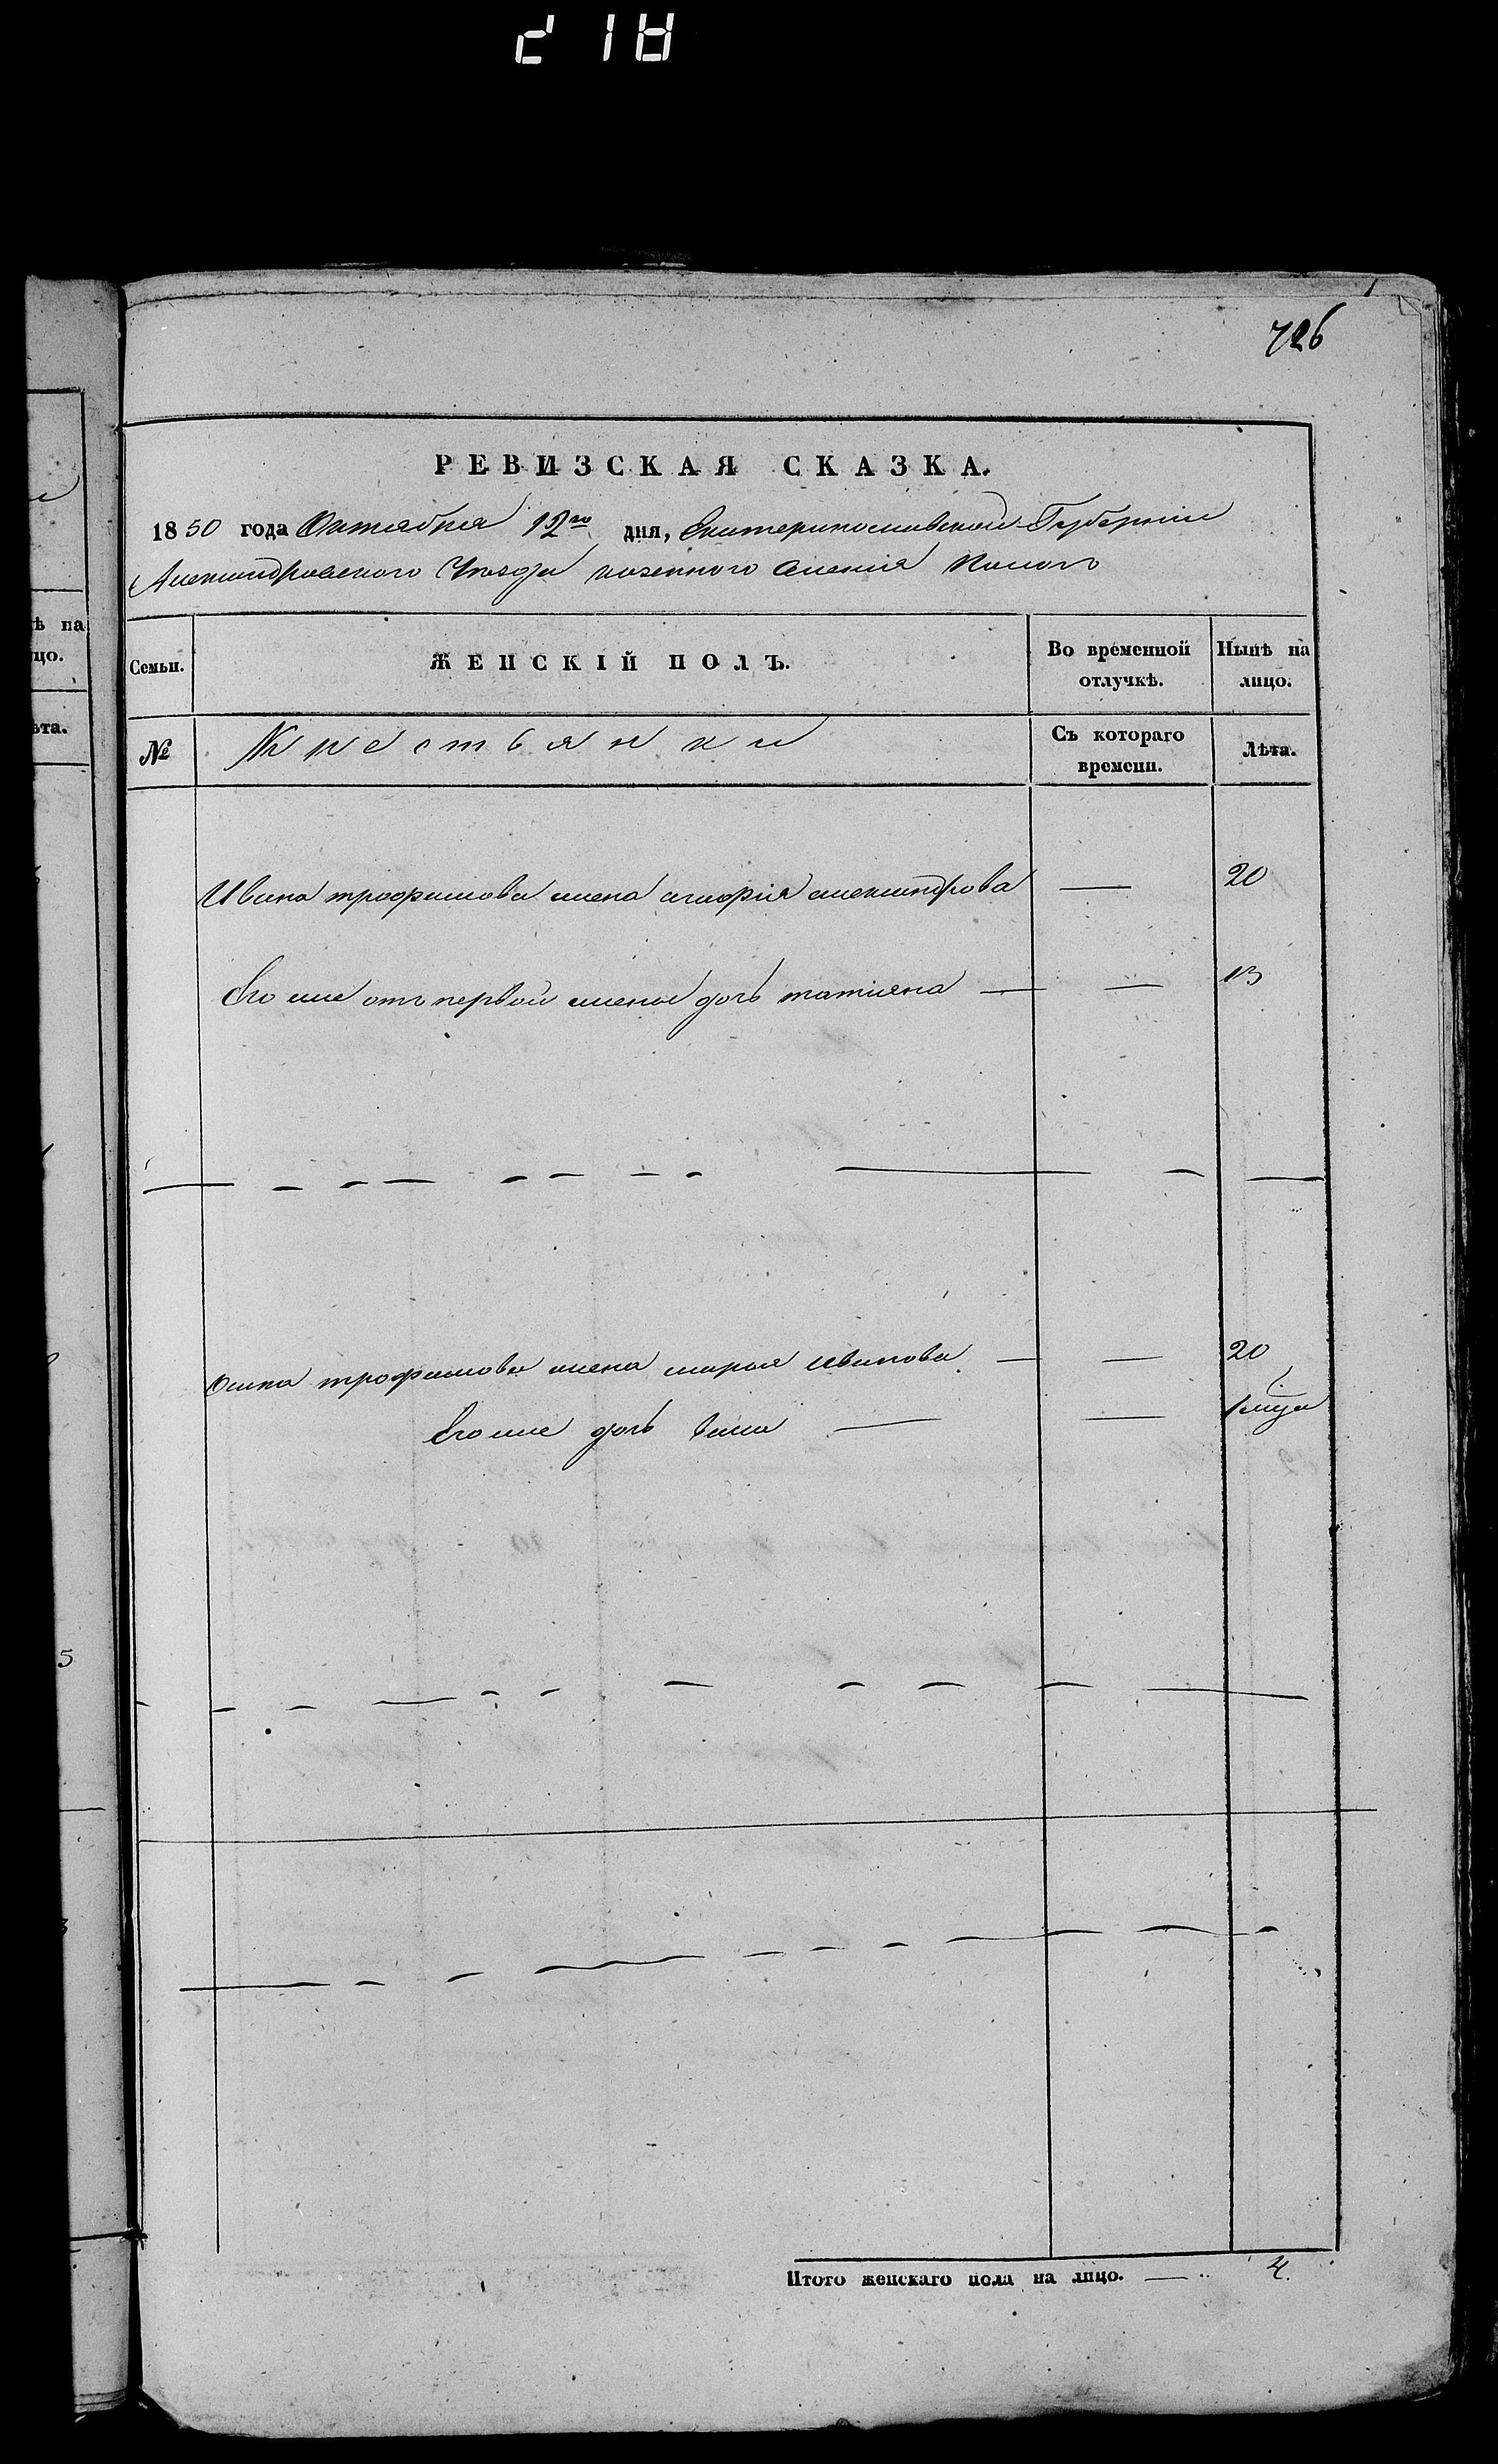 218
726
РЕВИЗСКАЯ СКАЗКА.
1850 года Октября 12го дня, Екатеринославской Губернии
Александровского Уезда казенного селения
Семьи.
ЖЕНСКІЙ ПОЛЪ.
Во временной отлучкѣ.
Нынѣ на лицо.
№
Крестьянки
Съ котораго времени.
Лѣта.
Ивана трофимова жена александрова — 20
Его же от первой жены дочь татияна — — 13
трофимова жена марья иванова — — 20
Его же дочь — —
Итого женскаго пола на лицо. — 4.
ѣ на
цо.
ѣта.
5